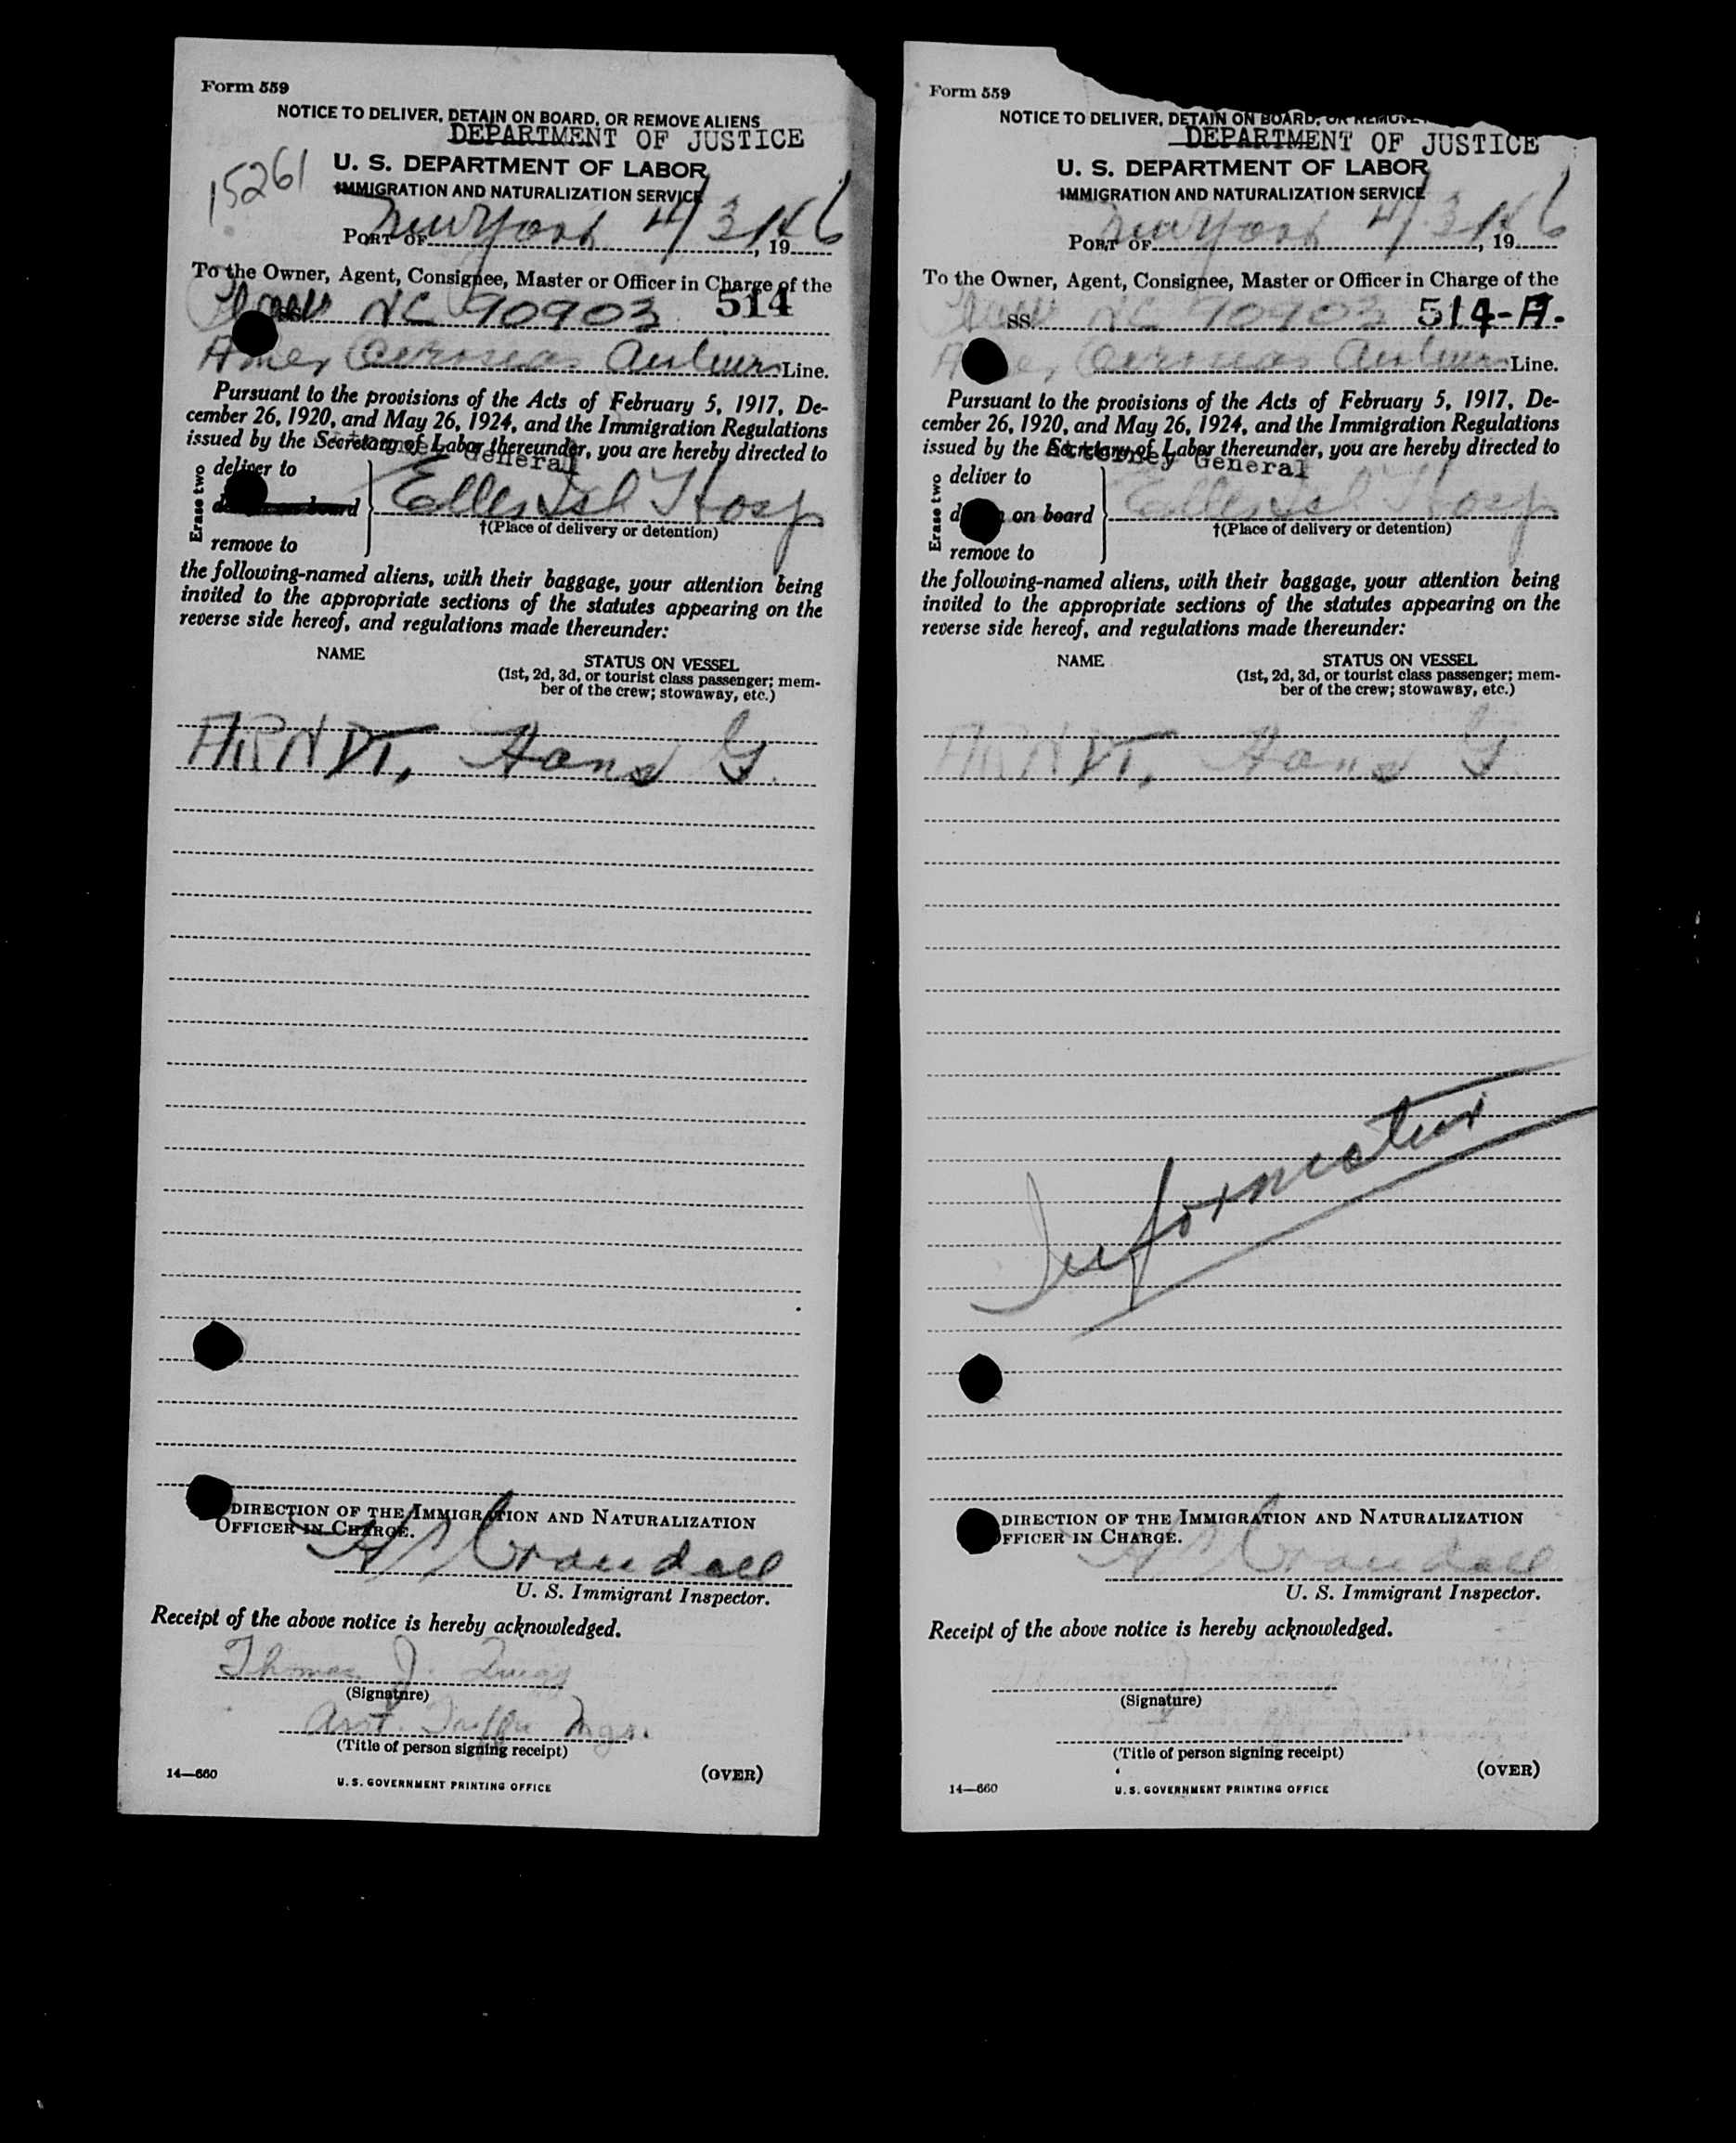 Form 559
NOTICE TO DELIVER, DETAIN ON BOARD, OR REMOVE ALIENS
DEPARTMENT OF JUSTICE
15261
U. S. DEPARTMENT OF LABOR
IMMIGRATION AND NATURALIZATION SERVICE
PORT OF New York 4/3/46, 19
To the Owner, Agent, Consignee, Master or Officer in Charge of the
NC 90903 514
Amer Overseas Airlines Line.
Pursuant to the provisions of the Acts of February 5, 1917, De-
cember 26, 1920, and May 26, 1924, and the Immigration Regulations
issued by the Secretary of Labor thereunder, you are hereby directed to
General
Erase two
deliver to
on board
Ellis Isl Hosp
†(Place of delivery or detention)
remove to
the following-named aliens, with their baggage, your attention being
invited to the appropriate sections of the statutes appearing on the
reverse side hereof, and regulations made thereunder:
NAME
STATUS ON VESSEL
(1st, 2d, 3d, or tourist class passenger; mem-
ber of the crew; stowaway, etc.)
ARNDT, Hans G.
DIRECTION OF THE IMMIGRATION AND NATURALIZATION
OFFICER IN CHARGE.
Crandall
U. S. Immigrant Inspector.
Receipt of the above notice is hereby acknowledged.
Thomas J.
(Signature)
Asst. Traffic Mgr.
(Title of person signing receipt)
14—660
U. S. GOVERNMENT PRINTING OFFICE
(OVER)
Form 559
NOTICE TO DELIVER, DETAIN ON BOARD, OR REMOVE
DEPARTMENT OF JUSTICE
U. S. DEPARTMENT OF LABOR
IMMIGRATION AND NATURALIZATION SERVICE
PORT OF New York 4/3/46, 19
To the Owner, Agent, Consignee, Master or Officer in Charge of the
SS. NC 90903 514-A.
Amer Overseas Airlines Line.
Pursuant to the provisions of the Acts of February 5, 1917, De-
cember 26, 1920, and May 26, 1924, and the Immigration Regulations
issued by the Secretary of Labor thereunder, you are hereby directed to
Attorney General
Erase two
deliver to
on board
Ellis Isl Hosp
†(Place of delivery or detention)
remove to
the following-named aliens, with their baggage, your attention being
invited to the appropriate sections of the statutes appearing on the
reverse side hereof, and regulations made thereunder:
NAME
STATUS ON VESSEL
(1st, 2d, 3d, or tourist class passenger; mem-
ber of the crew; stowaway, etc.)
ARNDT, Hans G.
Information
DIRECTION OF THE IMMIGRATION AND NATURALIZATION
OFFICER IN CHARGE.
Crandall
U. S. Immigrant Inspector.
Receipt of the above notice is hereby acknowledged.
(Signature)
(Title of person signing receipt)
14—660
U. S. GOVERNMENT PRINTING OFFICE
(OVER)